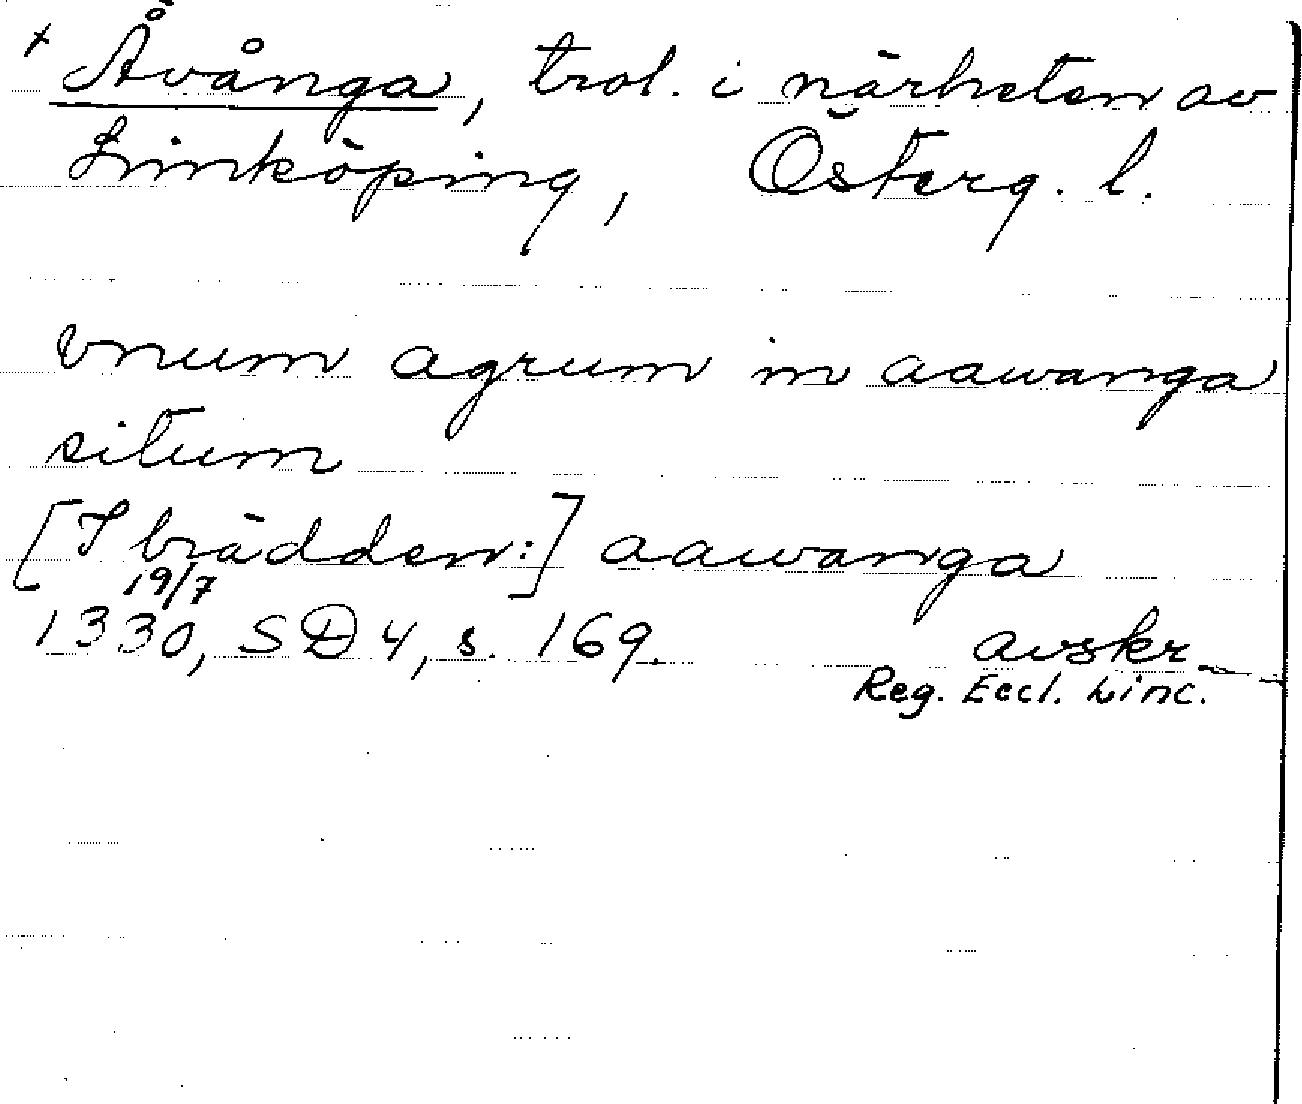 x Åvånga, trol. i närheten av
Linköping, Österg. l.
vnum agrum in aawanga
situm
[I brädden:] aawanga
19/7
1330, SD 4, s. 169. avskr.
Reg. Eccl. Linc.